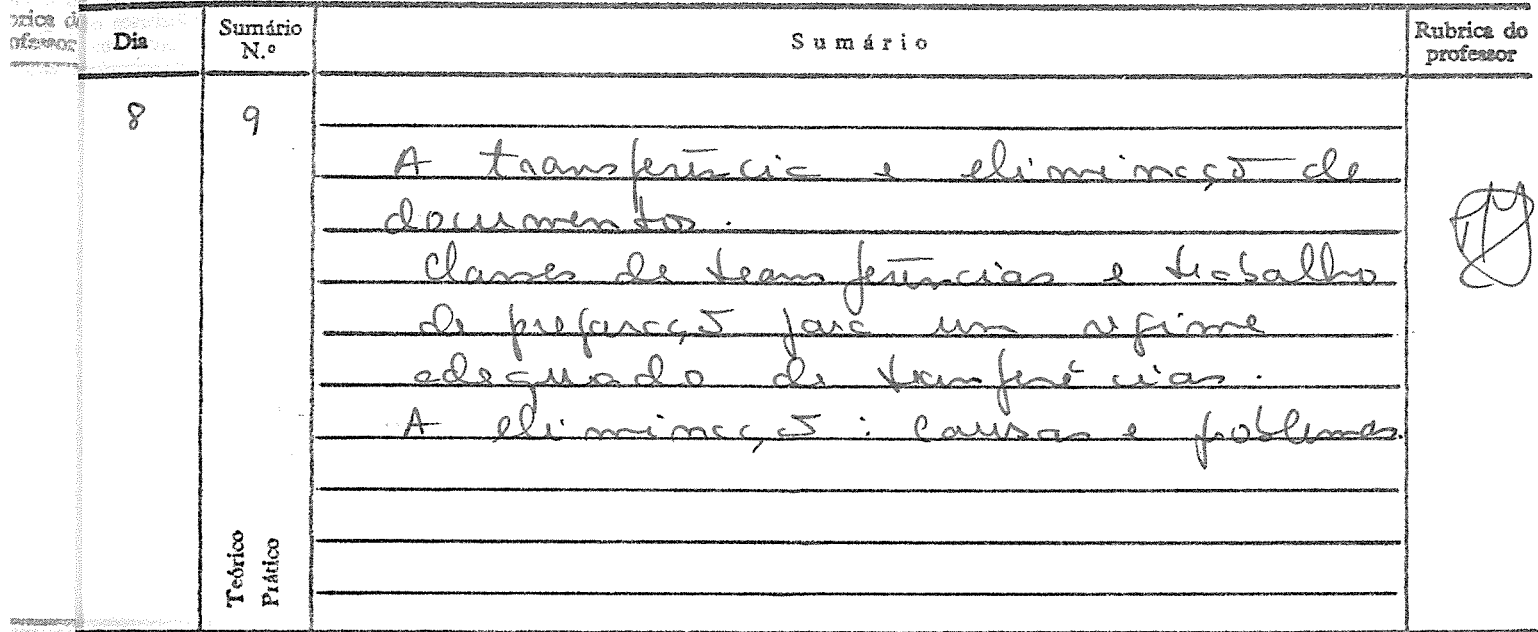 orica do
ofessor
Dia
Sumário
N.º
Sumário
Rubrica do
professor
8
9
A transferência e eliminação de
documentos.
Classes de transferências e trabalho
de preparação para um regime
adequado de transferências.
A eliminação: causas e problemas.
Teórico
Prático